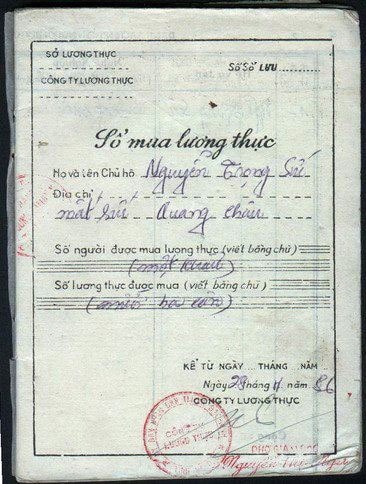 SỞ LƯƠNG THỰC
CÔNG TY LƯƠNG THỰC
Số Sổ LƯU
Sổ mua lương thực
Họ và tên Chủ hộ Nguyễn Trọng
Địa chỉ
mất sức Quang Châu
Số người được mua lương thực (viết bằng chữ)
(một khẩu)
Số lượng thực được mua (viết bằng chữ)
(mười ba cân)
KỂ TỪ NGÀY ... THÁNG ... NĂM ...
Ngày 28 tháng 4 năm 86
CÔNG TY LƯƠNG THỰC
PHÓ GIÁM ĐỐC
Nguyễn